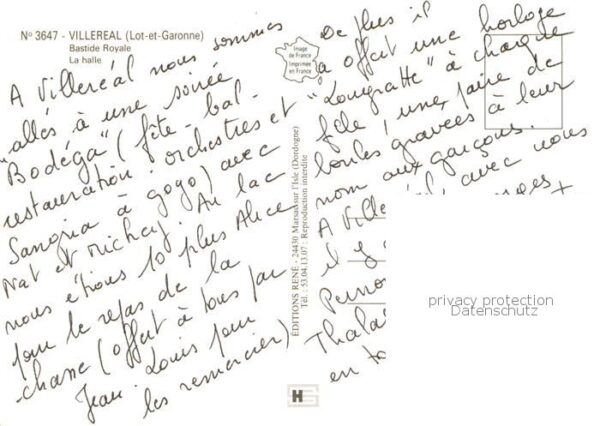 N° 3647 - VILLEREAL (Lot-et-Garonne)
Bastide Royale
La halle
A Villeréal nous sommes
allés à une soirée
"Bodéga" (fête - bal-
restauration - orchestres et
Sangria à gogo) avec
Nat et Michey. Au lac
nous étions 10 plus Alice
pour le repas de la
chasse (offert à tous par
Jean-Louis pour
les remercier)
Image
de France
Imprimée
en France
ÉDITIONS RENÉ - 24430 Marsac sur l'Isle (Dordogne)
Tél.: 53.04.13.07 : Reproduction interdite
De plus il
a offert une horloge
"Lougratte" à chaque
fille, une paire de
boules gravées à leur
nom aux garçons.
A Ville avec nous
il y
Perso
Thala
en to
privacy protection
Datenschutz